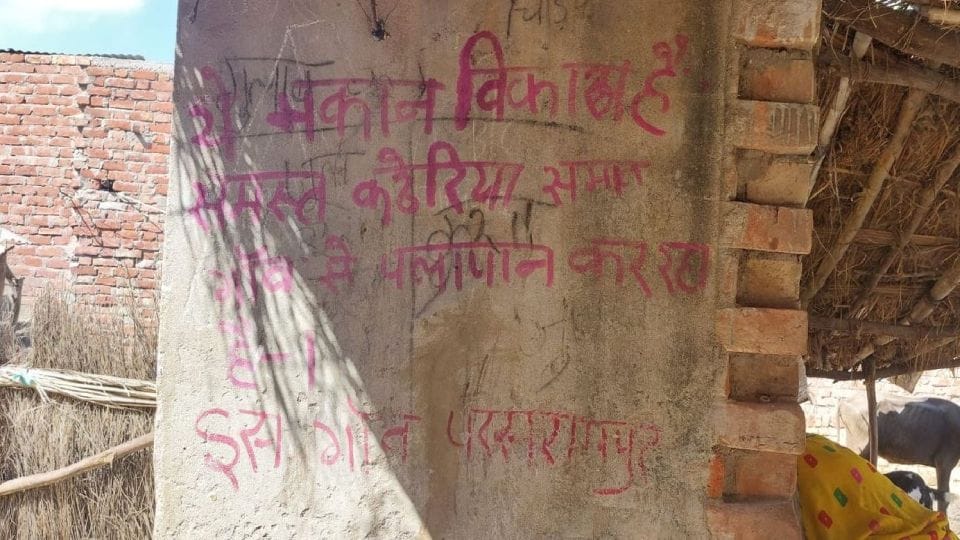 ये मकान विकाऊ है
समस्त कठेरिया समाज
गाँव से पलापान कर रहा
है-।
इस गाँव परसरामपुर